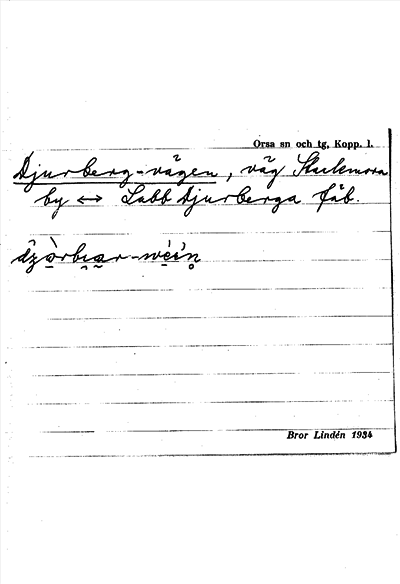 Orsa sn och tg, Kopp. l.
Djurberg-vägen, väg Stackmora
by ↔ Labb Djurberga fäb.
Bror Lindén 1934